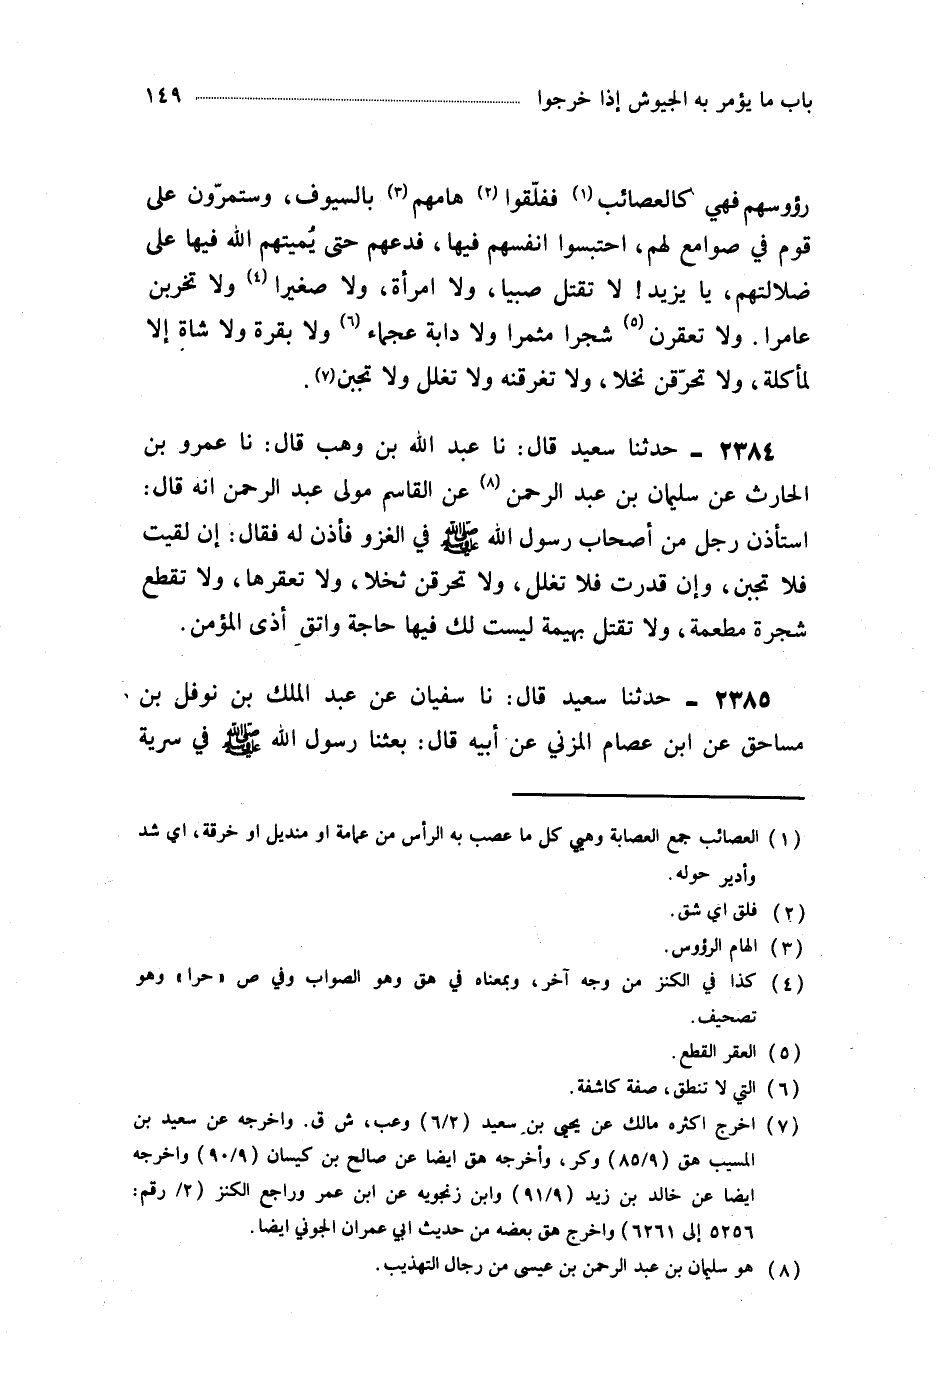 باب ما يؤمر به الجيوش إذا خرجوا ١٤٩
رؤوسهم فهي كالعصائب (١) ففلّقوا (٢) هامهم (٣) بالسيوف، وستمرّون على
قوم في صوامع لهم، احتبسوا انفسهم فيها، فدعهم حتى يُميتهم الله فيها على
ضلالتهم، يا يزيد! لا تقتل صبيا، ولا امرأة، ولا صغيرا (٤) ولا تخربن
عامرا. ولا تعقرن (٥) شجرا مثمرا ولا دابة عجماء (٦) ولا بقرة ولا شاة إلا
لمأكلة، ولا تحرّقن نخلا، ولا تغرقنه ولا تغلل ولا تجبن (٧).
٢٣٨٤ ـ حدثنا سعيد قال: نا عبد الله بن وهب قال: نا عمرو بن
الحارث عن سليمان بن عبد الرحمن (٨) عن القاسم مولى عبد الرحمن انه قال:
استأذن رجل من أصحاب رسول الله ﷺ في الغزو فأذن له فقال: إن لقيت
فلا تجبن، وإن قدرت فلا تغلل، ولا تحرقن نخلا، ولا تعقرها، ولا تقطع
شجرة مطعمة، ولا تقتل بهيمة ليست لك فيها حاجة واتق أذى المؤمن.
٢٣٨٥ ـ حدثنا سعيد قال: نا سفيان عن عبد الملك بن نوفل بن
مساحق عن ابن عصام المزني عن أبيه قال: بعثنا رسول الله ﷺ في سرية
(١) العصائب جمع العصابة وهي كل ما عصب به الرأس من عمامة او منديل او خرقة، اي شد
وأدير حوله.
(٢) فلق اي شق.
(٣) الهام الرؤوس.
(٤) كذا في الكنز من وجه آخر، وبمعناه في هق وهو الصواب وفي ص «حرا» وهو
تصحيف.
(٥) العقر القطع.
(٦) التي لا تنطق، صفة كاشفة.
(٧) اخرج اكثره مالك عن يحيى بن سعيد (٦/٢) وعب، ش ق. واخرجه عن سعيد بن
المسيب هق (٨٥/٩) وكر، وأخرجه هق ايضا عن صالح بن كيسان (٩٠/٩) واخرجه
ايضا عن خالد بن زيد (٩١/٩) وابن زنجويه عن ابن عمر وراجع الكنز (٢/ رقم:
٥٢٥٦ إلى ٦٢٦١) واخرج هق بعضه من حديث ابي عمران الجوني ايضا.
(٨) هو سليمان بن عبد الرحمن بن عيسى من رجال التهذيب.